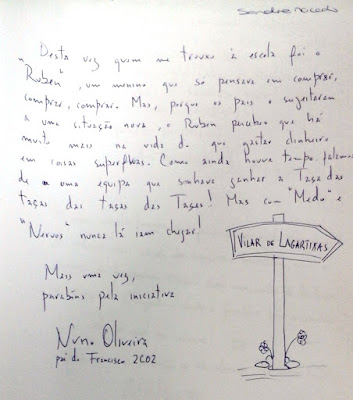 Sandra Macedo
" Desta vez quem me trouxe à escola foi o
"Ruben", um menino que só pensava em comprar,
comprar, comprar. Mas, porque os pais o sujeitaram
a uma situação nova, o Ruben percebeu que há
muito mais na vida do que gastar dinheiro
em coisas supérfluas. Como ainda houve tempo, falámos
de uma equipa que sonhava ganhar a Taça das
taças das taças das Taças! Mas com "Medo" e
"Nervos" nunca lá iam chegar!
Mais uma vez,
parabéns pela iniciativa
Nuno Oliveira
pai do Francisco 2C02
VILAR DE LAGARTIXAS